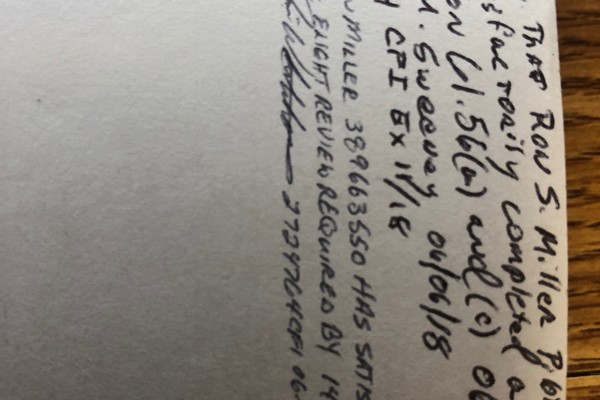 That Ron S. Miller Pi
sfactorily completed a
on 61.56(a) and (c) o
M. Sweeney 06/06/18
CFI Ex 11/18
MILLER 389663550 HAS SATIS
FLIGHT REVIEW REQUIRED BY 14